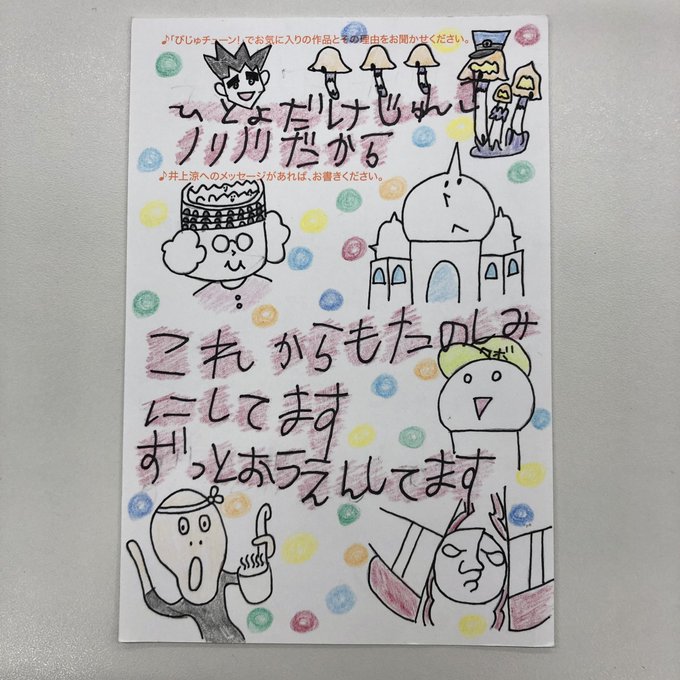 ♪「びじゅチューン!」でお気に入りの作品とその理由をお聞かせください。
ひとよだけじゅんさ
ノリノリだから
♪井上涼へのメッセージがあれば、お書きください。
これからもたのしみ
クボ
にしてます
ずっとおうえんしてます